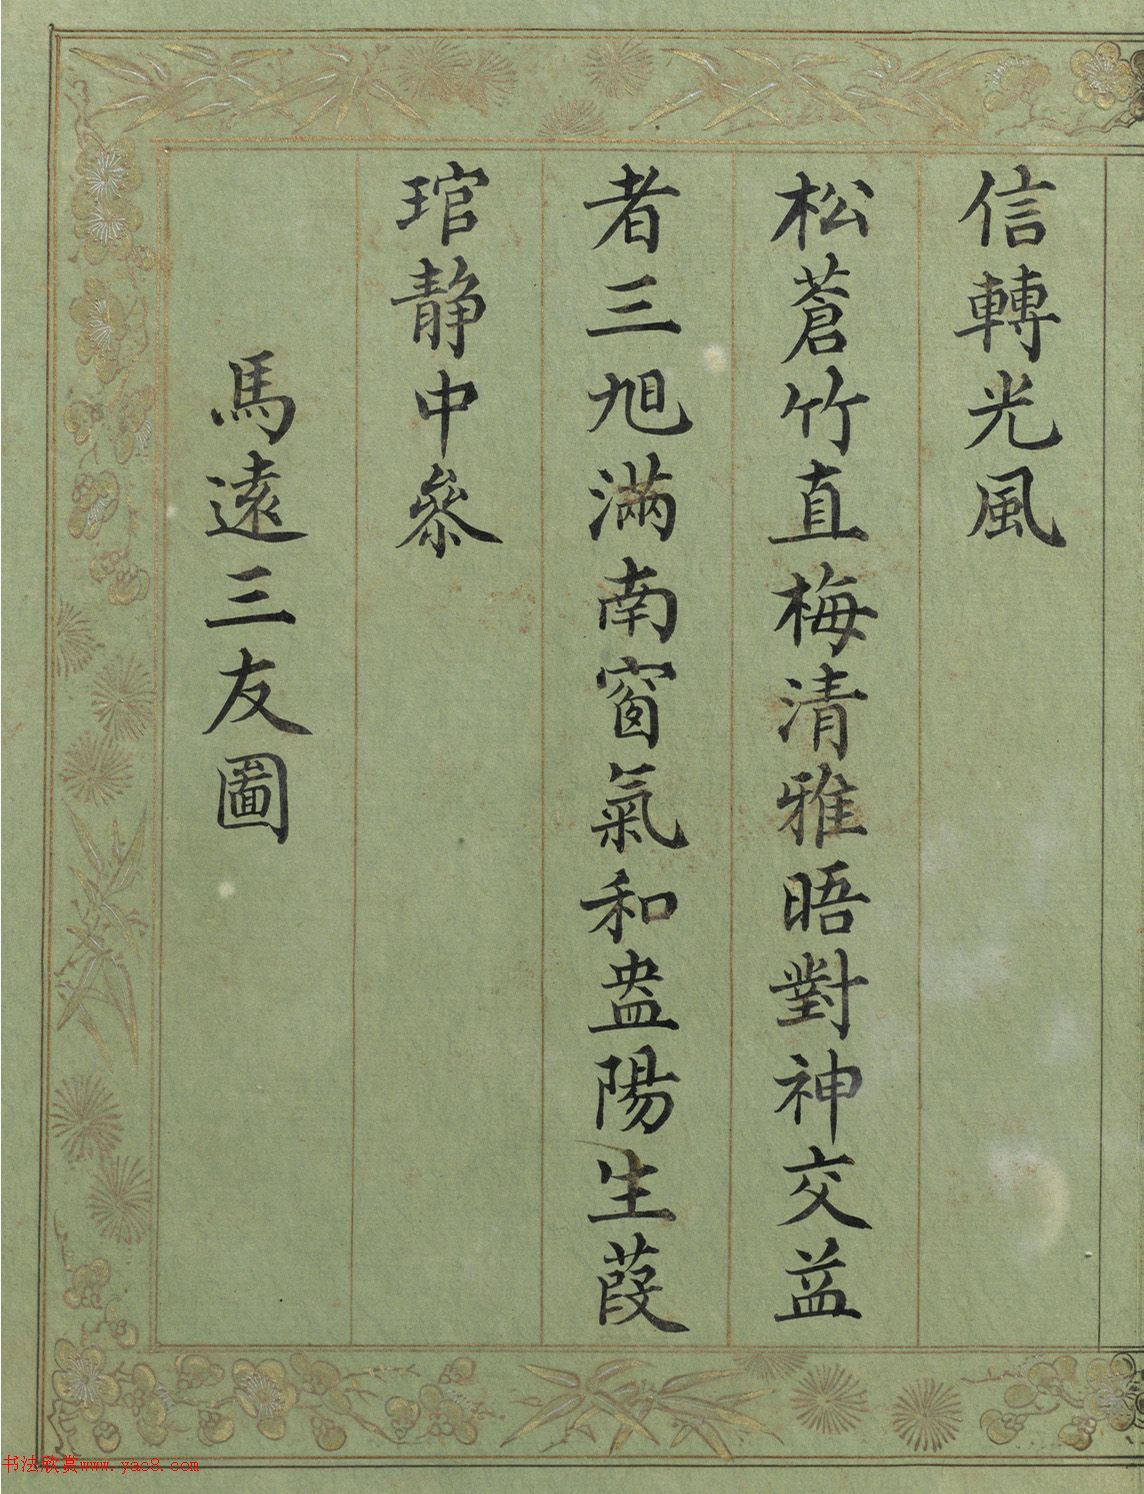 信轉光風
松蒼竹直梅清雅晤對神交益
者三旭滿南窗氣和盎陽生葭
琯静中參
馬遠三友圖
书法欣赏www.yac8.com